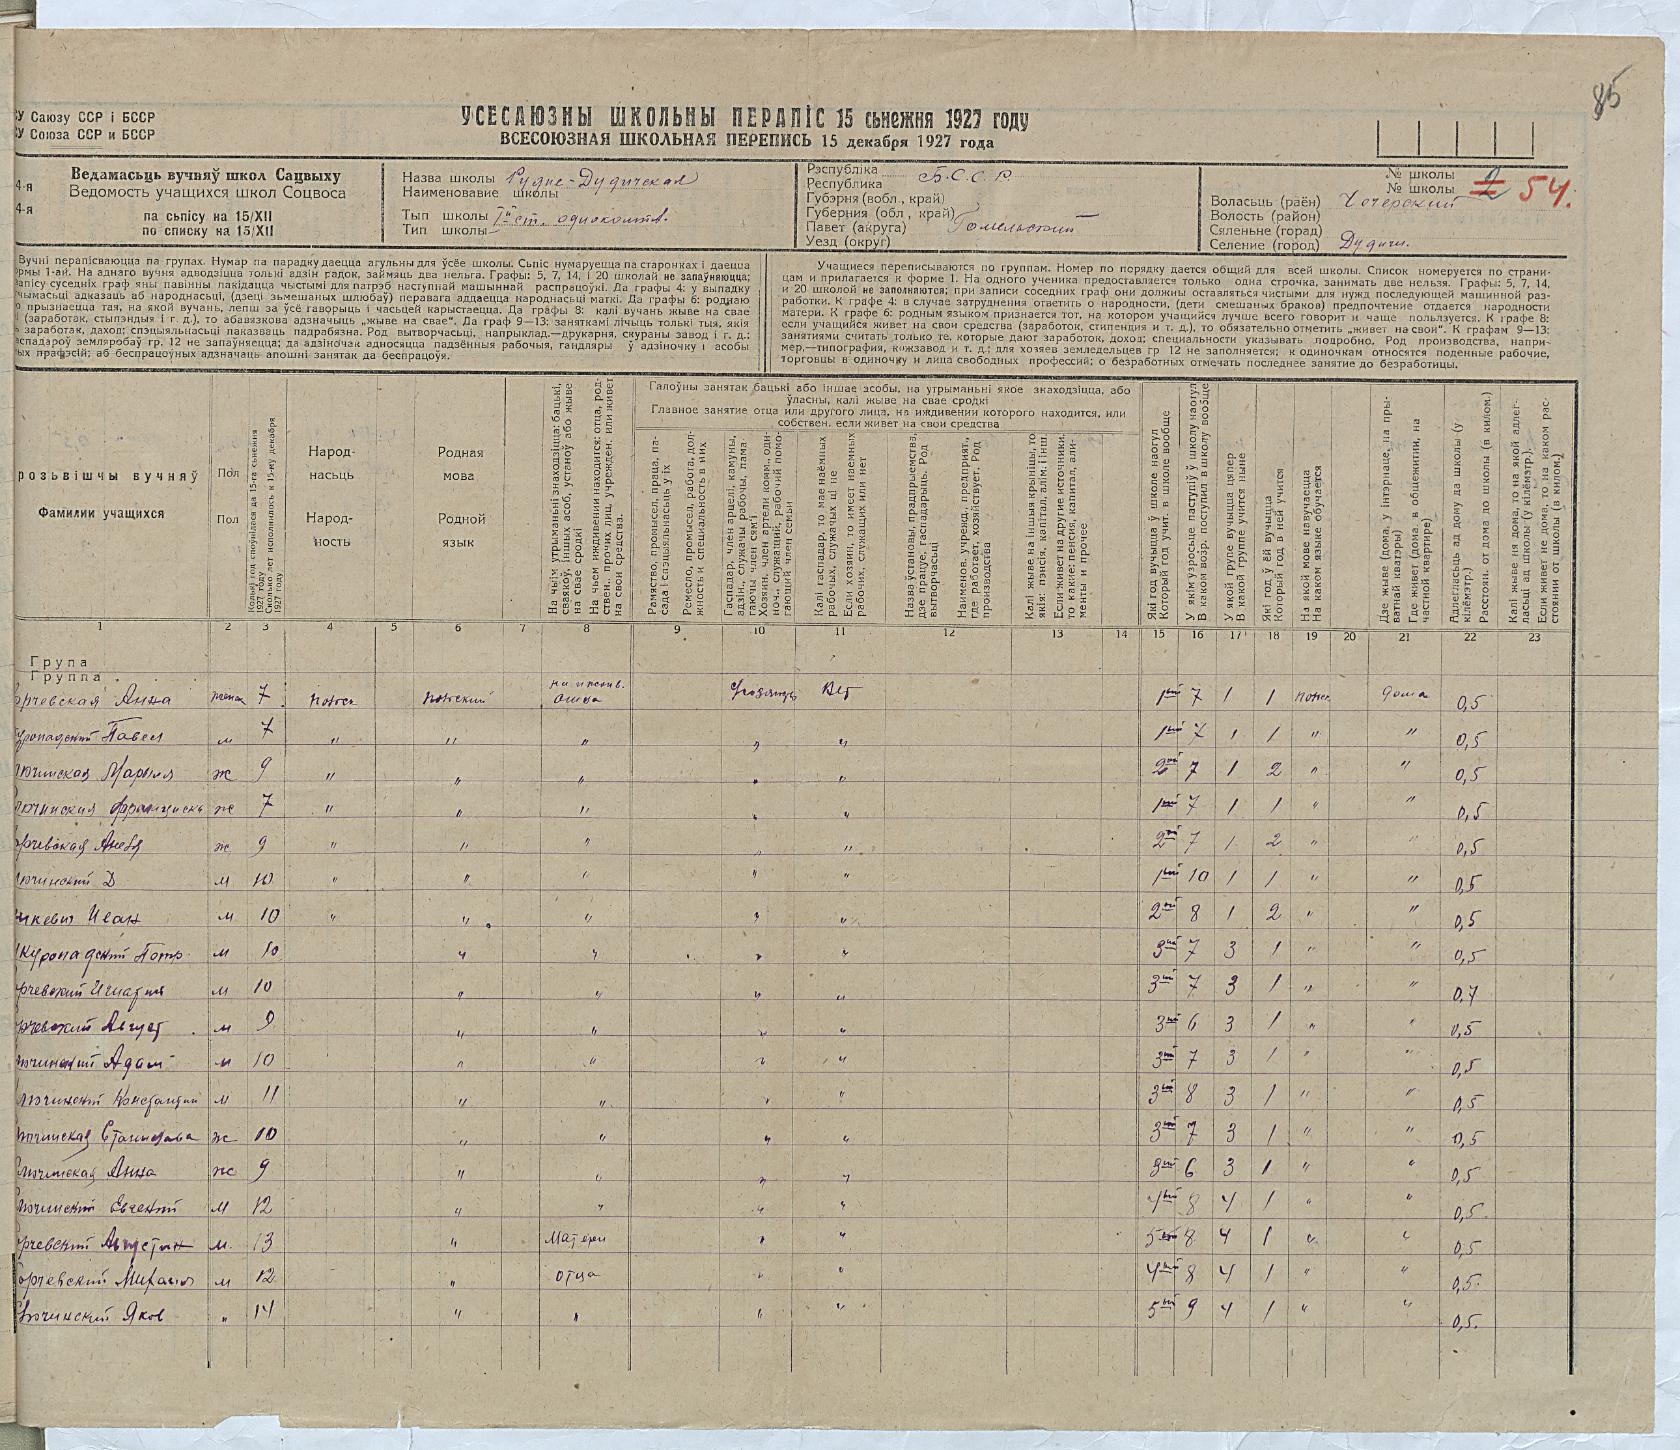 85
У Саюзу ССР і БССР
У Союза ССР и БССР
УСЕСАЮЗНЫ ШКОЛЬНЫ ПЕРАПІС 15 сьнежня 1927 году
ВСЕСОЮЗНАЯ ШКОЛЬНАЯ ПЕРЕПИСЬ 15 декабря 1927 года
4-я
4-я
Ведамасьць вучняў школ Сацвыху
Ведомость учащихся школ Соцвоса
па сьпісу на 15/XII
по списку на 15/XII
Назва школы Рудня-Дудичская
Наименовавие школы
Тып школы Iй ст. однокомпл.
Тип школы
Рэспубліка Б.С.С.Р.
Республика
Губэрня (вобл., край)
Губерния (обл, край)
Павет (акруга) Гомельский
Уезд (округ)
№ школы
№ школы 2 54.
Воласьць (раён) Чечерский
Волость (район)
Сяленьне (горад)
Селение (город) Дудичи.
Вучні перапісваюцца па групах. Нумар па парадку даецца агульны для ўсёе школы. Сьпіс нумаруецца па старонках і даецца
ормы 1-ай. На аднаго вучня адводзіцца толькі адзін радок, займаць два нельга. Графы: 5, 7, 14, і 20 школай не запаўняюцца;
апісу суседніх граф яны павінны пакідацца чыстымі для патрэб наступнай машыннай распрацоўкі. Да графы 4: у выпадку
чымасьці адказаць аб народнасьці, (дзеці зьмешаных шлюбаў) перавага аддаецца народнасьці маткі. Да графы 6: роднаю
о прызнаецца тая, на якой вучань, лепш за ўсё гаворыць і часьцей карыстаецца. Да графы 8: калі вучань жыве на свае
(заработак, стыпэндыя і г. д.), то абавязкова адзначыць „жыве на свае“. Да граф 9—13: заняткамі лічыць толькі тыя, якія
ь заработак, даход; спэцыяльнасьці паказваць падрабязна. Род вытворчасьці, напрыклад,—друкарня, скураны завод і г. д.;
аспадароў земляробаў гр. 12 не запаўняецца; да адзіночак адносяцца падзённыя рабочыя, гандляры ў адзіночку і асобы
ых прафэсій; аб беспрацоўных адзначаць апошні занятак да беспрацоўя.
Учащиеся переписываются по группам. Номер по порядку дается общий для всей школы. Список номеруется по страни-
цам и прилагается к форме 1. На одного ученика предоставляется только одна строчка, занимать две нельзя. Графы: 5, 7, 14,
и 20 школой не заполняются; при записи соседних граф они должны оставляться чистыми для нужд последующей машинной раз-
работки. К графе 4: в случае затруднения ответить о народности, (дети смешаных браков) предпочтение отдается народности
матери. К графе 6: родным языком признается тот, на котором учащийся лучше всего говорит и чаще пользуется. К графе 8:
если учащийся живет на свои средства (заработок, стипендия и т. д.), то обязательно отметить „живет на свои“. К графам 9—13:
занятиями считать только те, которые дают заработок, доход; специальности указывать подробно. Род производства, напри-
мер,—типография, кожзавод и т. д.; для хозяев земледельцев гр 12 не заполняется; к одиночкам относятся поденные рабочие,
торговцы в одиночку и лица свободных профессий; о безработных отмечать последнее занятие до безработицы.
розьвішчы вучняў
Фамилии учащихся
Пол
Пол
Колькі год споўнілася да 15-га сьнежня 1927 году
Сколько лет исполнилось к 15-му декабря 1927 году
Народ-
насьць
Народ-
ность
Родная
мова
Родной
язык
На чыім утрыманьні знаходзіцца: бацькі, сваякоў, іншых асоб, устаноў або жыве на свае сродкі
На чьем иждивении находится: отца, род-ствен., прочих лиц, учрежден. или живет на свои средства.
Галоўны занятак бацькі або іншае асобы, на утрыманьні якое знаходзіцца, або
ўласны, калі жыве на свае сродкі
Главное занятие отца или другого лица, на иждивении которого находится, или
собствен. если живет на свои средства
Рамяство, промысел, праца, па-сада і спэцыяльнасьць у іх
Ремесло, промысел, работа, дол-жность и специальность в них
Гаспадар, член арцелі, камуны, адзін., служачы рабочы, пама-гаючы член сям'і
Хозяин, член артели комм., оди-ноч., служащий, рабочий помо-гающий член семьи
Калі гаспадар, то мае наёмных рабочых, служачых ці не
Если хозяин, то имеет наемных рабочих, служащих или нет
Назва ўстановы, прадпрыемства, дзе працуе, гаспадарыць. Род вытворчасьці
Наименов. учрежд., предприят., где работает, хозяйствует. Род производства
Калі жыве на іншыя крыніцы, то якія: пэнсія, капітал, алім. і інш.
Если живет на другие источники, то какие: пенсия, капитал, али-менты и прочее
Які год вучыцца ў школе наогул
Который год учит. в школе вообще
У якім узросьце паступіў ў школу наогул
В каком возр. поступил в школу вообще
У якой групе вучыцца цяпер
В какой группе учится ныне
Які год ў ёй вучыцца
Который год в ней учится
На якой мове навучаецца
На каком языке обучается
Дзе жыве (дома, у інтэрнаце, на пры-ватнай кватэры)
Где живет (дома, в общежитии, на частной квартире)
Адлегласьць ад дому да школы (у кілёмэтр.)
Расстоян. от дома до школы (в килом.)
Калі жыве ня дома, то на якой адлег-ласьці ад школы (у кілёмэтр.).
Если живет не дома, то на каком рас-стоянии от школы (в килом.)
1 2 3 4 5 6 7 8 9 10 11 12 13 14 15 16 17 18 19 20 21 22 23
Група
Группа
орчевская Анна женск 7 польск польский на иждив. отца нет 1ый 7 1 1 польск дома 0,5
уропадский Павел м 7 „ „ „ „ „ 1ый 7 1 1 „ „ 0,5
ючинская Марыля ж 9 „ „ „ „ „ 2ой 7 1 2 „ „ 0,5
ючинская Франциска ж 7 „ „ „ „ „ 1ый 7 1 1 „ „ 0,5
орчевская Анеля ж 9 „ „ „ „ „ 2ой 7 1 2 „ „ 0,5
ючинский Д м 10 „ „ „ „ „ 1ый 10 1 1 „ „ 0,5
нкевич Иван м 10 „ „ „ „ „ 2ой 8 1 2 „ „ 0,5
куропадский Петр м 10 „ „ „ „ 3ий 7 3 1 „ „ 0,5
орчевский Игнатий м 10 „ „ „ „ 3ий 7 3 1 „ „ 0,7
орчевский Август м 9 „ „ „ „ 3ий 6 3 1 „ „ 0,5
ючинский Адам м 10 „ „ „ „ 3ий 7 3 1 „ „ 0,5
лючинский Константин м 11 „ „ „ „ 3ий 8 3 1 „ „ 0,5
ючинская Станислава ж 10 „ „ „ „ 3ий 7 3 1 „ „ 0,5
лючинская Анна ж 9 „ „ „ „ 3ий 6 3 1 „ „ 0,5
лючинский Евгений м 12 „ „ „ „ 4ый 8 4 1 „ „ 0,5
орчевский Августин м. 13 „ матери „ „ 5ый 8 4 1 „ „ 0,5
орчевский Михаил м 12 „ отца „ „ 4ый 8 4 1 „ „ 0,5
лючинский Яков „ 14 „ „ „ „ 5ый 9 4 1 „ „ 0,5.